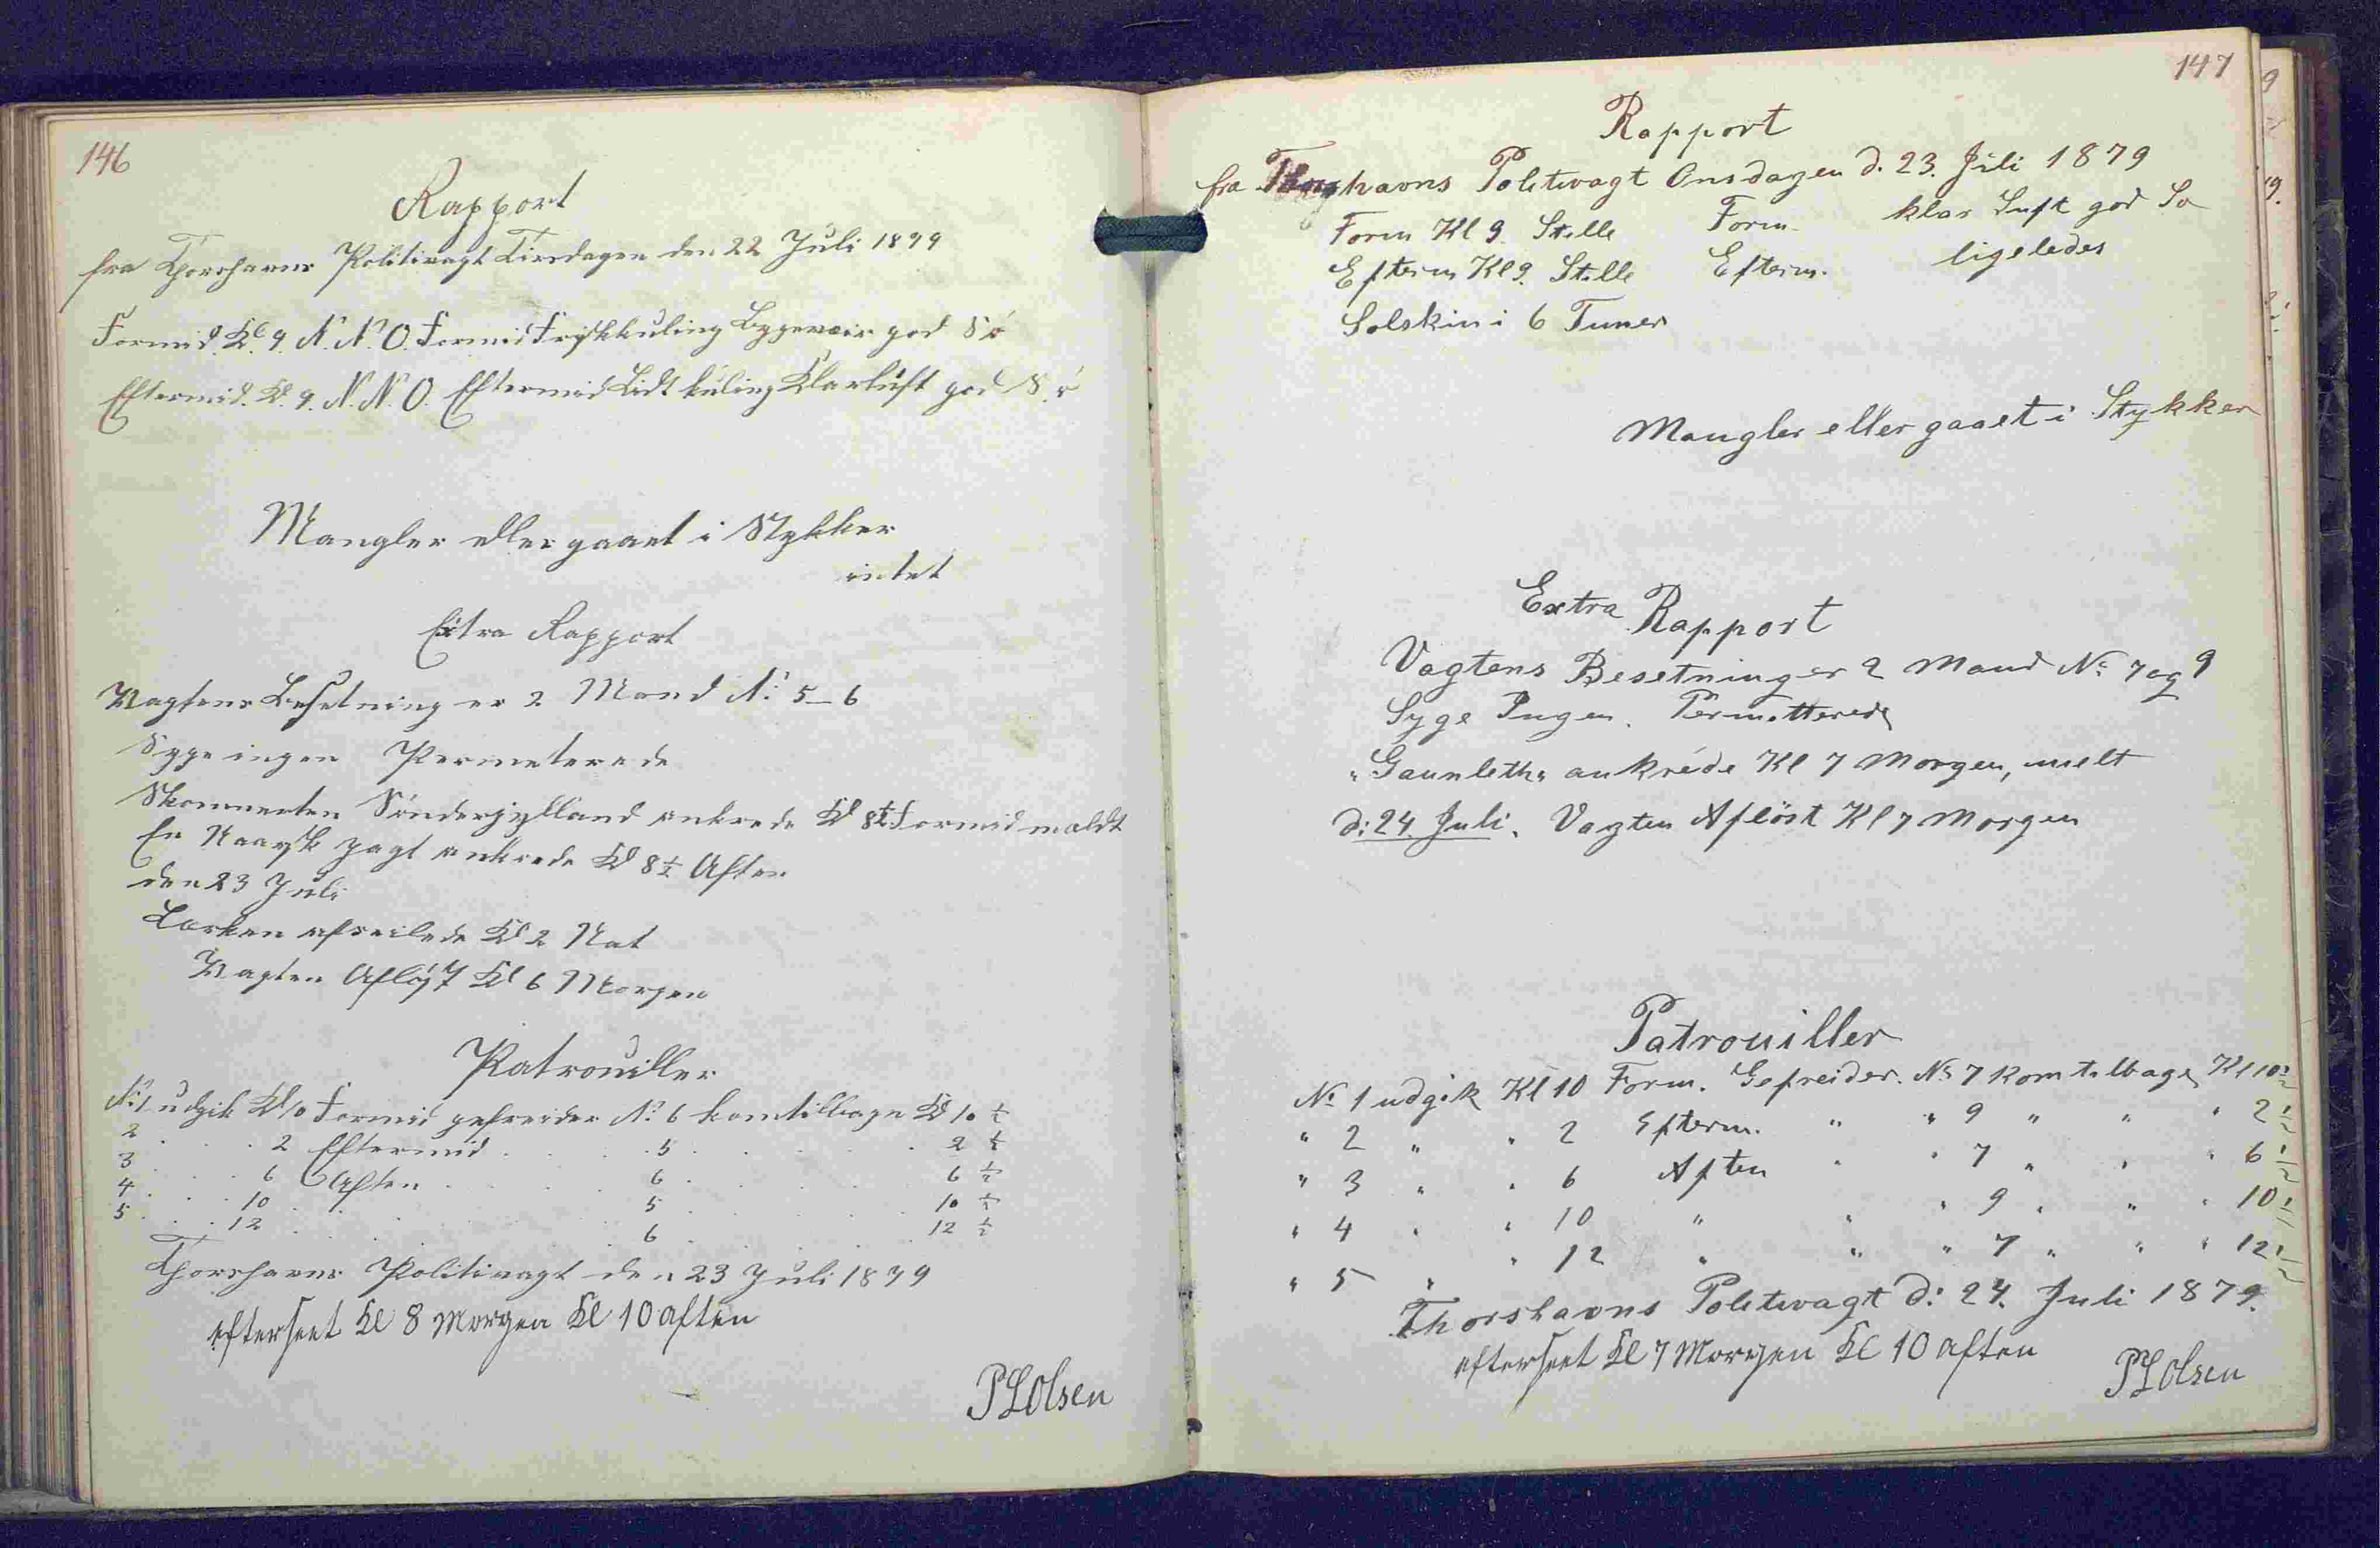 146
Rapport
fra Thorshavns Politivagt Tirsdagen den 22 Juli 1879
Formid. Kl. 9. N.N.O. Formid Friskkuling Bygeveir god Sö
Eftermid. Kl. 9. N.N.O. Eftermid Lidt kuling Klarluft god Sö
Mangler eller gaaet i Stykker
intet
Extra Rapport
Vagtens Besetning er 2 Mand No 5–6
Syge ingen Permeterede
Skonnerten Sönderjylland ankrede Kl 8½ Formid meldt
En Norsk Jagt ankrede Kl 8½ Aften
den 23 Juli
Lærken afseilede Kl 2 Nat
Vagten Aflöst Kl 6 Morgen
Patrouiller
No 1 udgik Kl 10 Formid gefreider No 6 kom tilbage Kl 10 ½
2 . . . 2 Eftermid . . . 5 . . . 2 ½
3 . . . 6 Aften . . . 6 . . . 6 ½
4 . . . 10 . . . 5 . . . 10 ½
5 . . . 12 . . . 6 . . . 12 ½
Thorshavns Politivagt den 23 Juli 1879
efterseet Kl 8 Morgen Kl 10 aften
P L Olsen
147
Rapport
fra Thorshavns Politivagt Onsdagen d. 23. Juli 1879
Form Kl 9. Stille Form. klar Luft god Sø
Efterm Kl 9. Stille Efterm. ligeledes
Solskin i 6 Timer
Mangler eller gaaet i Stykker
Extra Rapport
Vagtens Besetning er 2 Mand No 7 og 9
Syge Ingen. Permitterede
"Gaunleth" ankrede Kl 7 Morgen, melt
d: 24. Juli. Vagten Aflöst Kl 7 Morgen
Patrouiller
No 1 udgik Kl 10 Form. Gefreider. No 7 kom tilbage Kl 10½
" 2 " " 2 Efterm. " " 9 " " " 2½
" 3 " " 6 Aften " " 7 " " " 6½
" 4 " " 10 " " " 9 " " " 10½
" 5 " " 12 " " " 7 " " " 12½
Thorshavns Politivagt d: 24. Juli 1879.
efterseet Kl 7 Morgen Kl 10 aften
P L Olsen